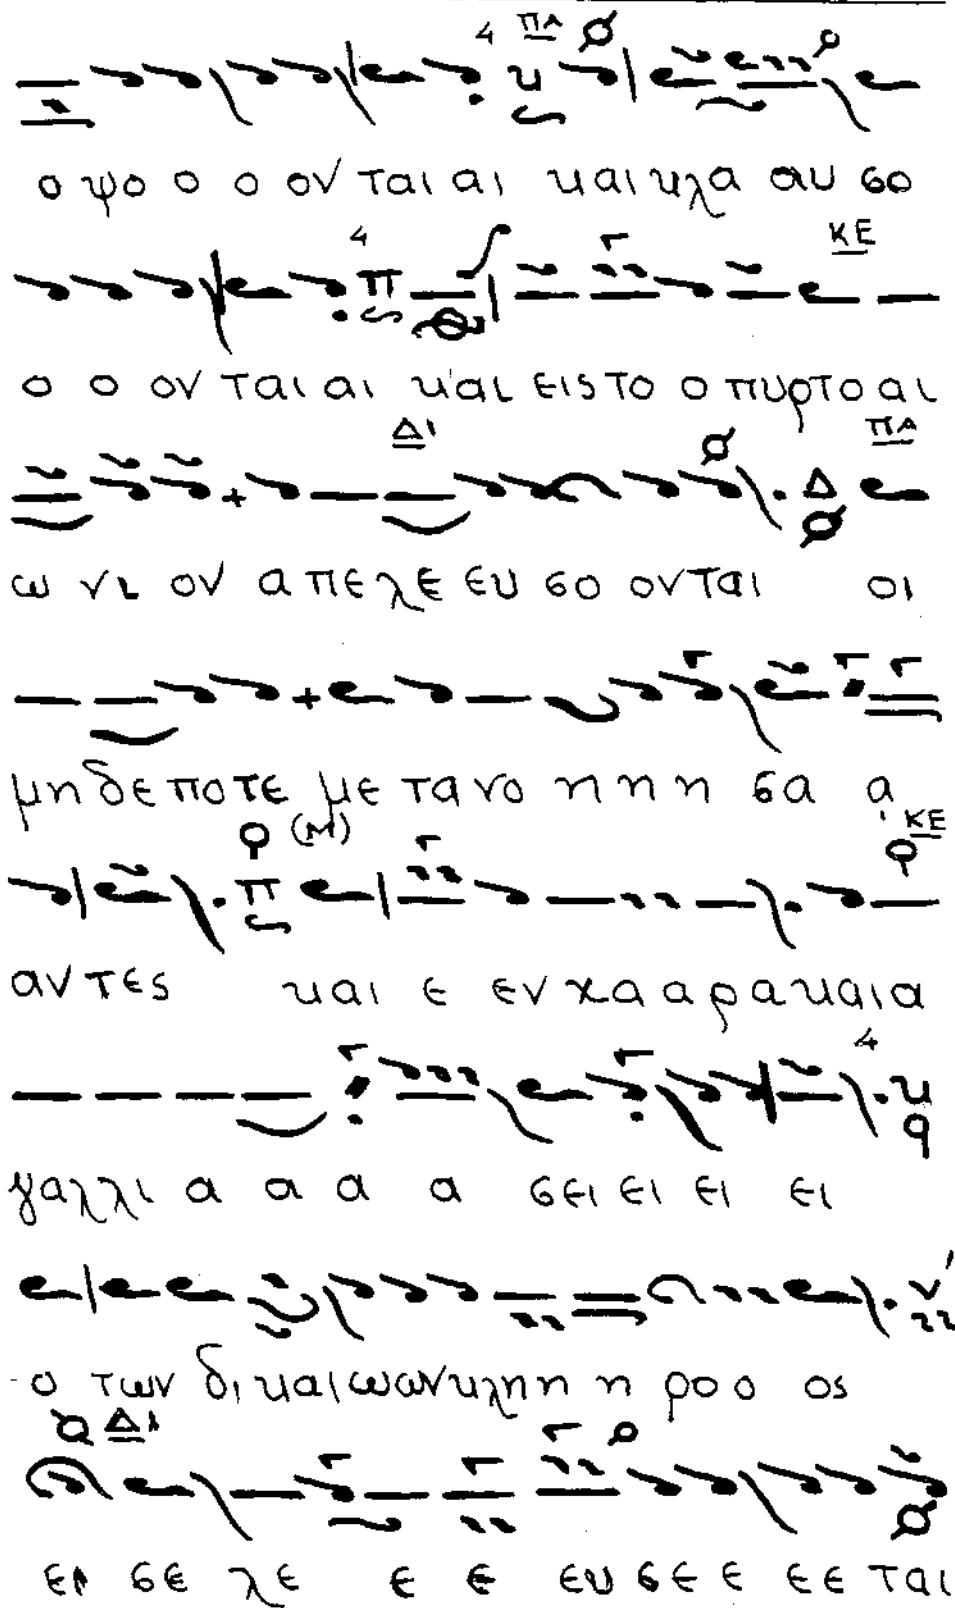 ο ψο ο ο ον ται αι και κλα αυ σο
ο ο ον ται αι και εις το ο πυρ το αι
ω νι ον α πε λε ευ σο ονται οι
μη δε πο τε με τα νο η η η σα α
αν τες και ε εν χα α ρα και α
γαλ λι α α α α σει ει ει ει
ο των δι και ω ων κλη η η ρο ο ος
ει σε λε ε ε ευ σε ε ε ε ται